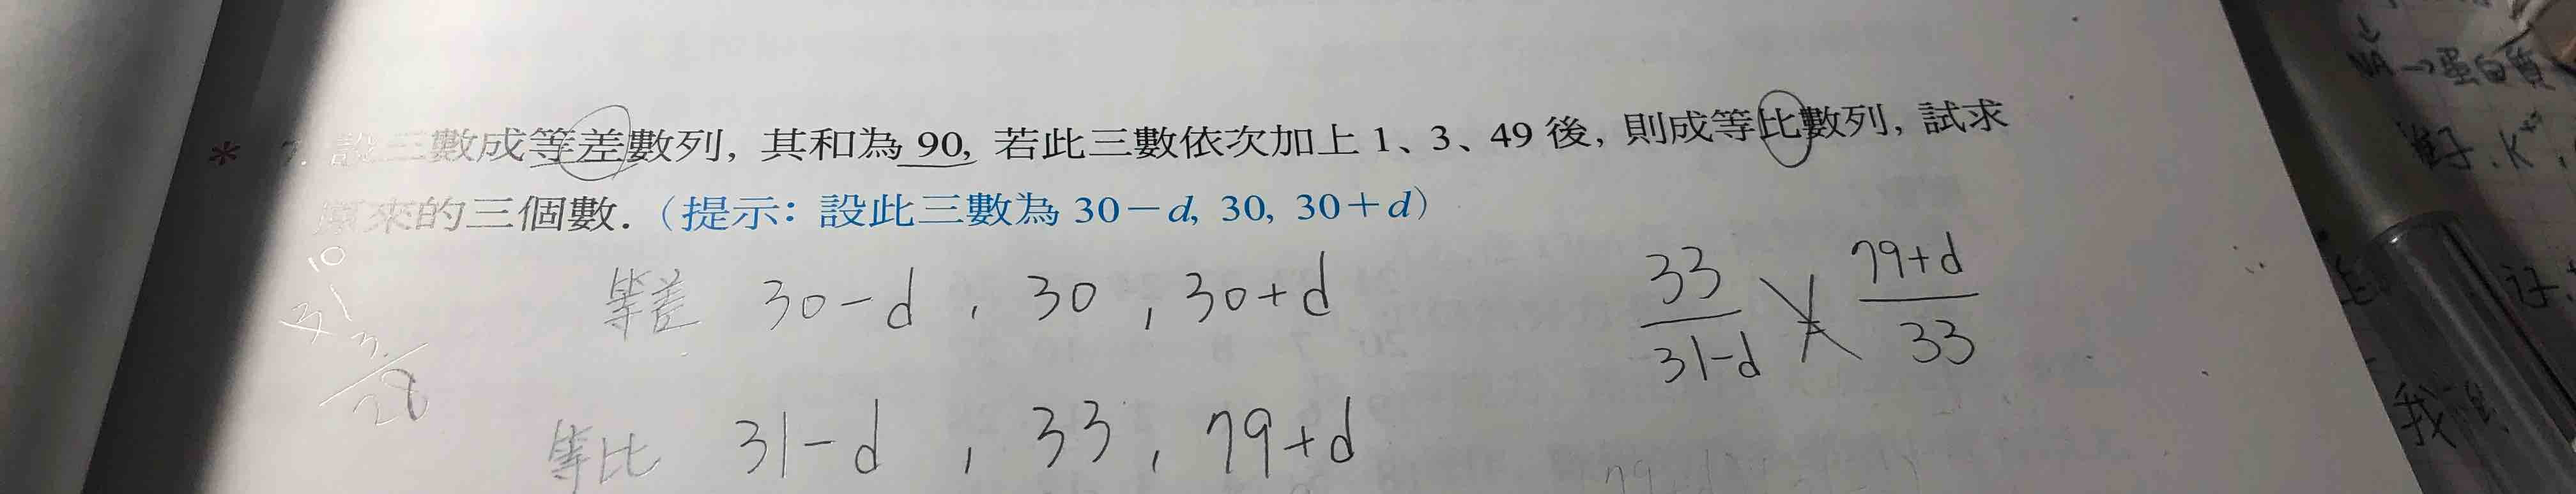 * 7. 設三數成等差數列, 其和為 90, 若此三數依次加上 1、3、49 後, 則成等比數列, 試求
原來的三個數. (提示: 設此三數為 30－d, 30, 30＋d)
等差 30－d , 30 , 30＋d
33/31－d 79＋d/33
等比 31－d , 33 , 79＋d
→蛋白質
K⁺